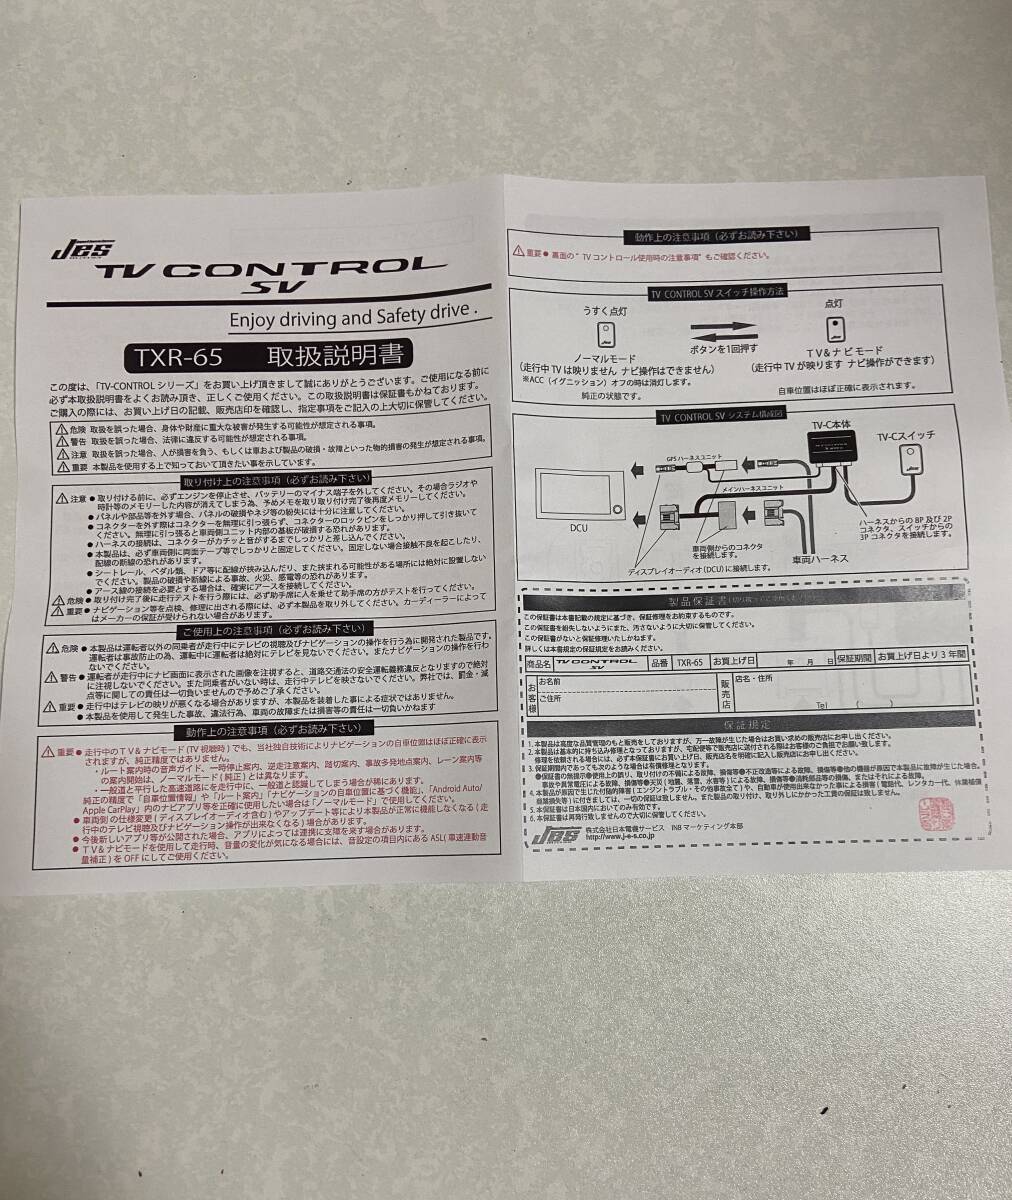 Jes
TV CONTROL
SV
Enjoy driving and Safety drive .
TXR-65 取扱説明書
この度は、「TV-CONTROL シリーズ」をお買い上げ頂きまして誠にありがとうございます。ご使用になる前に
必ず本取扱説明書をよくお読み頂き、正しくご使用ください。この取扱説明書は保証書もかねております。
ご購入の際には、お買い上げ日の記載、販売店印を確認し、指定事項をご記入の上大切に保管してください。
危険 取扱を誤った場合、身体や財産に重大な被害が発生する可能性が想定される事項。
警告 取扱を誤った場合、法律に違反する可能性が想定される事項。
注意 取扱を誤った場合、人が損害を負う、もしくは車および製品の破損・故障といった物的損害の発生が想定される事項。
重要 本製品を使用する上で知っておいて頂きたい事を示しています。
取り付け上の注意事項（必ずお読み下さい）
注意 ● 取り付ける前に、必ずエンジンを停止させ、バッテリーのマイナス端子を外してください。その場合ラジオや
時計等のメモリーした内容が消えてしまう為、予めメモを取り取り付け完了後再度メモリーしてください。
● パネルや部品等を外す場合、パネルの破損やネジ等の紛失には十分に注意してください。
● コネクターを外す際はコネクターを無理に引っ張らず、コネクターのロックピンをしっかり押して引き抜いて
ください。無理に引っ張ると車両側ユニット内部の基板が破損する恐れがあります。
● ハーネスの接続は、コネクターがカチッと音がするまでしっかりと差し込んでください。
● 本製品は、必ず車両側に両面テープ等でしっかりと固定してください。固定しない場合接触不良を起こしたり、
配線の断線の恐れがあります。
● シートレール、ペダル類、ドア等に配線が挟み込んだり、また挟まれる可能性がある場所には絶対に設置しない
でください。製品の破損や断線による事故、火災、感電等の恐れがあります。
● アース線の接続を必要とする場合は、確実にアースを接続してください。
危険 ● 取り付け完了後に走行テストを行う際には、必ず助手席に人を乗せて助手席の方がテストを行ってください。
重要 ● ナビゲーション等を点検、修理に出される際には、必ず本製品を取り外してください。カーディーラーによって
はメーカーの保証が受けられない場合があります。
ご使用上の注意事項（必ずお読み下さい）
危険 ● 本製品は運転者以外の同乗者が走行中にテレビの視聴及びナビゲーションの操作を行う為に開発された製品です。
運転者は事故防止の為、運転中に運転者は絶対にテレビを見ないでください。またナビゲーションの操作を行わ
ないでください。
警告 ● 運転者が走行中にナビ画面に表示された画像を注視すると、道路交通法の安全運転義務違反となりますので絶対
に注視しないでください。また同乗者がいない時は、走行中テレビを映さないでください。弊社では、罰金・減
点等に関しての責任は一切負いませんので予めご了承ください。
重要 ● 走行中はテレビの映りが悪くなる場合がありますが、本製品を装着した事による症状ではありません。
● 本製品を使用して発生した事故、違法行為、車両の故障または損害等の責任は一切負いかねます
動作上の注意事項（必ずお読み下さい）
重要 ● 走行中のＴＶ＆ナビモード(TV 視聴時 ) でも、当社独自技術によりナビゲーションの自車位置はほぼ正確に表示
されますが、純正精度ではありません。
・ルート案内時の音声ガイド、一時停止案内、逆走注意案内、踏切案内、事故多発地点案内、レーン案内等
の案内開始は、ノーマルモード ( 純正 ) とは異なります。
・一般道と平行した高速道路にを走行中に、一般道と認識してしまう場合が稀にあります。
純正の精度で「自車位置情報」や「ルート案内」「ナビゲーションの自車位置に基づく機能」、「Android Auto/
Apple CarPlay」内のナビアプリ等を正確に使用したい場合は「ノーマルモード」で使用してください。
● 車両側の仕様変更 ( ディスプレイオーディオ含む ) やアップデート等により本製品が正常に機能しなくなる ( 走
行中のテレビ視聴及びナビゲーション操作が出来なくなる ) 場合があります。
● 今後新しいアプリ等が公開された場合、アプリによっては連携に支障を来す場合があります。
● ＴＶ＆ナビモードを使用して走行時、音量の変化が気になる場合には、音設定の項目内にある ASL( 車速連動音
量補正 ) を OFF にしてご使用ください。
動作上の注意事項（必ずお読み下さい）
重要 ● 裏面の“ TV コントロール使用時の注意事項” もご確認ください。
TV CONTROL SV スイッチ操作方法
うすく点灯
点灯
ボタンを1回押す
ノーマルモード
（走行中TVは映りません ナビ操作はできません）
※ACC（イグニッション）オフの時は消灯します。
純正の状態です。
ＴＶ＆ナビモード
（走行中 TV が映ります ナビ操作ができます）
自車位置はほぼ正確に表示されます。
TV CONTROL SV システム構成図
TV-C本体
TV-Cスイッチ
GPSハーネスユニット
メインハーネスユニット
DCU
ハーネスからの 8P 及び 2P
コネクタ、スイッチからの
3P コネクタを接続します。
車両側からのコネクタ
を接続します。
車両ハーネス
ディスプレイオーディオ(DCU)に接続します。
製品保証書
この保証書は本書記載の規定に基づき、保証修理をお約束するものです。
この保証書を紛失しないようにまた、汚さないように大切に保管してください。
この保証書がないと保証修理いたしかねます。
詳しくは本書規定の保証規定をお読みください。
商品名 TV CONTROL SV 品番 TXR-65 お買上げ日 年 月 日 保証期間 お買上げ日より 3 年間
お客様 お名前 ご住所
販売店 店名・住所 Tel ( )
保証規定
1. 本製品は高度な品質管理のもと販売をしておりますが、万一故障が生じた場合はお買い求めの販売店にお申し出ください。
2. 本製品は基本的に持ち込み修理となっておりますが、宅配便等で販売店に送付される際はお客様のご負担でお願い致します。
修理を依頼される場合には、必ず本保証書にお買い上げ日、販売店名を明確に記入し販売店にお申し出ください。
3. 保証期間内であっても次のような場合は有償修理となります。
●保証書の無提示●使用上の誤り、取り付けの不備による故障、損傷等●不正改造等による故障、損傷等●他の機器が原因で本製品に故障が生じた場合。
事故や異常電圧による故障、損傷等●天災 ( 地震、落雷、水害等 ) による故障、損傷等●消耗部品等の損傷、またはそれによる故障。
4. 本製品が原因で生じた付随的障害 ( エンジントラブル・その他事故全て ) や、自動車が使用出来なかった事による損害 ( 電話代、レンタカー代、休業補償
商業損失等 ) に付きましては、一切の保証は致しません。また製品の取り付け、取り外しにかかった工賃の保証は致しません。
5. 本保証書は日本国内においてのみ有効です。
6. 本保証書は再発行致しませんので大切に保管してください。
Jes 株式会社日本電機サービス INB マーケティング本部
http://www.j-e-s.co.jp